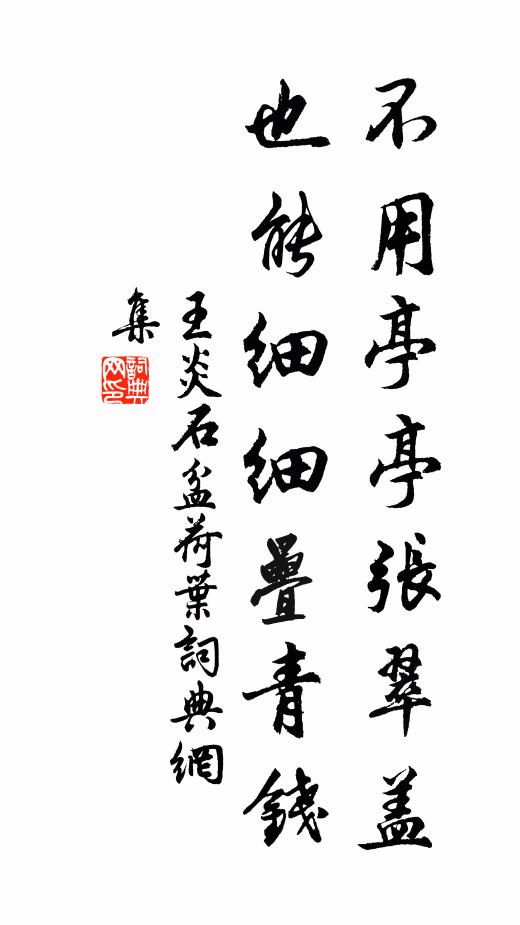 不用亭亭張翠盖
也能細細疊青錢
王炎石盆荷葉詞典網
集
詞典
网印